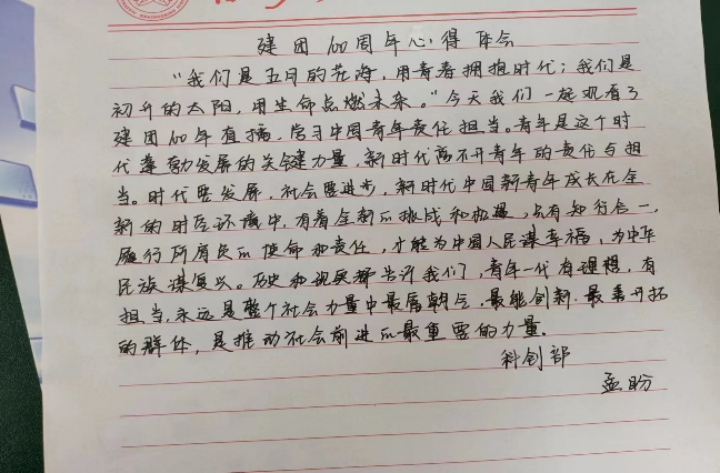 建团100周年心得体会
“我们是五月的花海，用青春拥抱时代；我们是
初升的太阳，用生命点燃未来。”今天我们一起观看了
建团100年直播，学习中国青年责任担当。青年是这个时
代蓬勃发展的关键力量，新时代离不开青年的责任与担
当。时代要发展，社会要进步，新时代中国新青年成长在全
新的时空环境中，有着全新的挑战和机遇，只有知行合一，
履行所肩负的使命和责任，才能为中国人民谋幸福，为中华
民族谋复兴。历史和现实都告诉我们，青年一代有理想，有
担当，永远是整个社会力量中最富朝气，最能创新，最勇开拓
的群体，是推动社会前进的最重要的力量。
科创部
孟盼